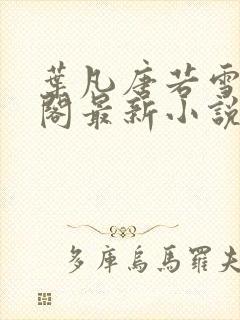 葉凡唐若雪
閣最新小說
多庫烏馬羅夫